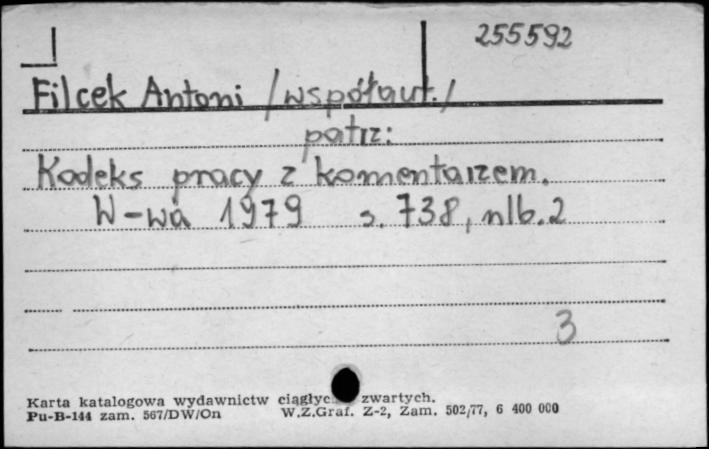 255592
Filcek Antoni /współaut./
patrz:
Kodeks pracy z komentarzem.
W-wa 1979 s. 738, nlb. 2
3
Karta katalogowa wydawnictw zwartych.
Pu-B-144 zam. 567/DW/On W.Z.Graf. Z-2, Zam. 502/77, 6 400 000